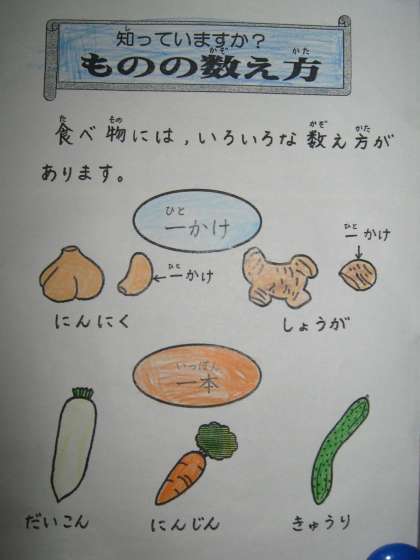 知っていますか?
ものの数え方
食べ物には,いろいろな数え方が
あります。
一かけ
一かけ
一かけ
にんにく
しょうが
一本
だいこん
にんじん
きゅうり